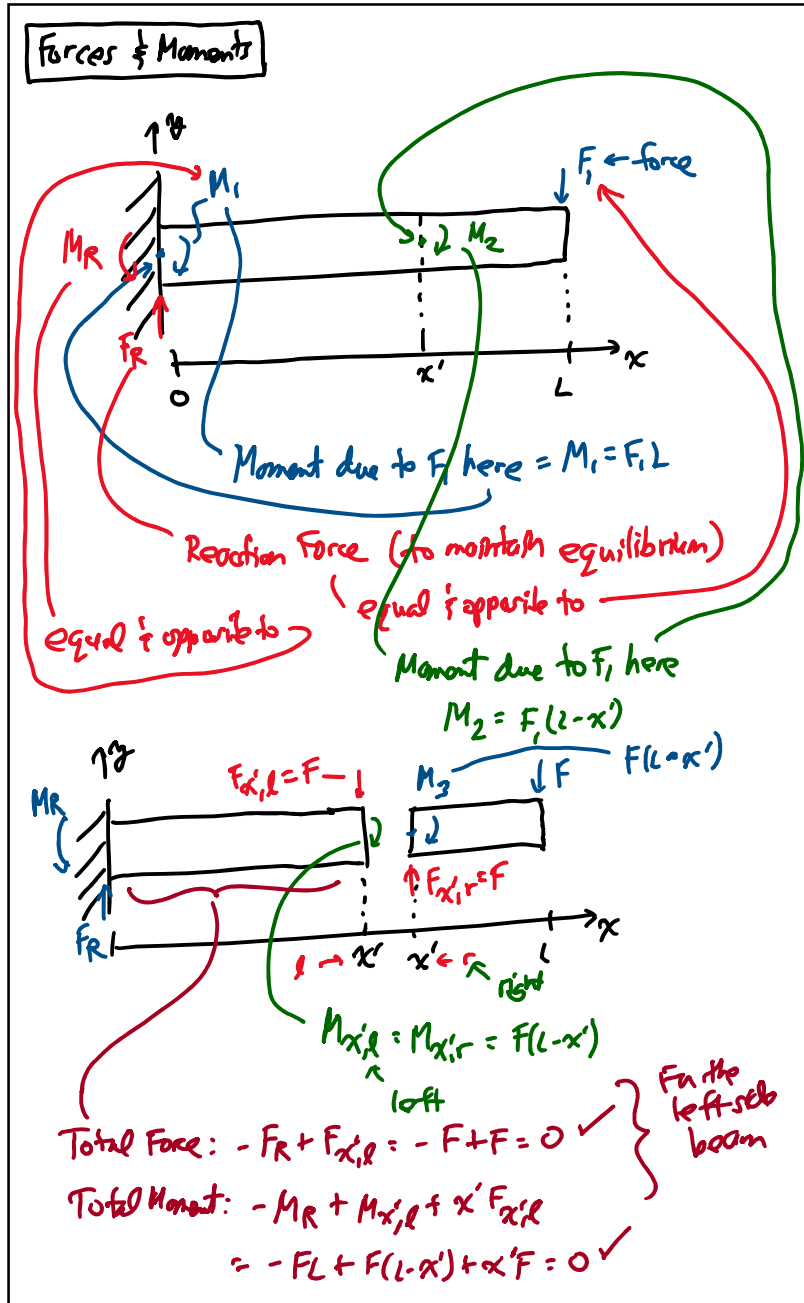 Forces & Moments
y
M₁
F₁ ← force
M_R
M₂
F_R
0
x'
L
x
Moment due to F₁ here = M₁ = F₁L
Reaction Force (to maintain equilibrium)
equal & opposite to
equal & opposite to
Moment due to F₁ here
M₂ = F₁(L-x')
y
F_x',l = F
M₃
F(L-x')
F
M_R
F_x',r = F
F_R
l → x'
x' ← r
L
x
right
M_x',l = M_x',r = F(L-x')
left
For the
left side
beam
Total Force: - F_R + F_x',l = - F + F = 0 ✓
Total Moment: - M_R + M_x',l + x' F_x',l
= - FL + F(L-x') + x'F = 0 ✓